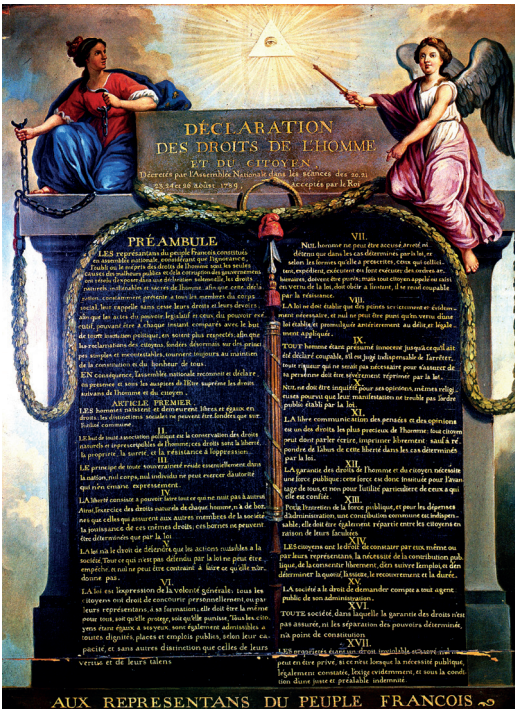 DÉCLARATION
DES DROITS DE L'HOMME
ET DU CITOYEN
Décretés par l'Assemblée Nationale dans les séances des 20, 21
23, 24 et 26 août 1789, acceptés par le Roi
PRÉAMBULE
LES représentans du peuple François, constitués
en assemblée nationale, considérant que l'ignorance,
l'oubli ou le mépris des droits de l'homme sont les seules
causes des malheurs publics et de la corruption des gouvernemens
ont résolu d'exposer dans une déclaration solemnelle, les droits
naturels, inaliénables et sacrés de l'homme, afin que cette décla-
ration, constamment présente à tous les membres du corps
social, leur rappelle sans cesse leurs droits et leurs devoirs;
afin que les actes du pouvoir législatif et ceux du pouvoir exé-
cutif, pouvant être à chaque instant comparés avec le but
de toute institution politique, en soient plus respectés; afin que
les réclamations des citoyens, fondées désormais sur des princi-
pes simples et incontestables, tournent toujours au maintien
de la constitution et du bonheur de tous.
EN conséquence, l'assemblée nationale reconnoit et déclare,
en présence et sous les auspices de l'Etre suprême les droits
suivans de l'homme et du citoyen.
ARTICLE PREMIER.
LES hommes naissent et demeurent libres et égaux en
droits. les distinctions sociales ne peuvent être fondées que sur
l'utilité commune.
II.
LE but de toute association politique est la conservation des droits
naturels et imprescriptibles de l'homme; ces droits sont la liberté,
la propriété, la sureté, et la résistance à l'oppression.
III.
LE principe de toute souveraineté réside essentiellement dans
la nation, nul corps, nul individu ne peut exercer d'autorité
qui n'en émane expressement.
IV.
LA liberté consiste à pouvoir faire tout ce qui ne nuit pas à autrui
Ainsi, l'exercice des droits naturels de chaque homme, n'a de bor-
nes que celles qui assurent aux autres membres de la société
la jouissance de ces mêmes droits; ces bornes ne peuvent
être déterminées que par la loi
V.
LA loi n'a le droit de défendre que les actions nuisibles à la
société. Tout ce qui n'est pas défendu par la loi ne peut être
empêché, et nul ne peut être contraint à faire ce qu'elle n'or-
donne pas.
VI.
LA loi est l'expression de la volonté générale; tous les
citoyens ont droit de concourir personnellement, ou par
leurs représentans, à sa formation; elle doit être la même
pour tous, soit qu'elle protege, soit qu'elle punisse. Tous les cito-
yens étant égaux à ses yeux, sont également admissibles à
toutes dignités, places et emplois publics, selon leur ca-
pacité, et sans autres distinction que celles de leurs
vertus et de leurs talens
VII.
NUL homme ne peut être accusé, arreté, ni
détenu que dans les cas déterminés par la loi, et
selon les formes qu'elle a prescrites, ceux qui sollici-
tent, expédient, exécutent ou font exécuter des ordres ar-
bitraires, doivent être punis; mais tout citoyen appelé ou saisi
en vertu de la loi, doit obéir à l'instant, il se rend coupable
par la résistance.
VIII.
LA loi ne doit établir que des peines strictement et évidem-
ment nécessaire, et nul ne peut être puni qu'en vertu d'une
loi établie et promulguée antérierement au délit, et légale-
ment appliquée.
IX.
TOUT homme étant présumé innocent jusqu'à ce qu'il ait
été déclaré coupable, s'il est jugé indispensable de l'arrêter,
toute rigueur qui ne serait pas nécessaire pour s'assurer de
sa personne doit être sévèrement réprimée par la loi.
X.
NUL ne doit être inquiété pour ses opinions, mêmes religi-
euses pourvu que leur manifestation ne trouble pas l'ordre
public établi par la loi.
XI.
LA libre communication des pensées et des opinions
est un des droits les plus precieux de l'homme; tout citoyen
peut donc parler écrire, imprimer librement: sauf à ré-
pondre de l'abus de cette liberté dans les cas déterminés
par la loi.
XII.
LA garantie des droits de l'homme et du citoyen nécessite
une force publique; cette force est donc instituée pour l'avan-
tage de tous, et non pour l'utilité particuliere de ceux à qui
elle est confiée.
XIII.
Pour l'entretien de la force publique, et pour les dépenses
d'administration, une contribution commune est indispen-
sable; elle doit être également répartie entre les citoyens en
raison de leurs facultés.
XIV.
LES citoyens ont le droit de constater par eux même ou
par leurs représentans, la nécessité de la contribution pub-
lique, de la consentir librement, d'en suivre l'emploi, et d'en
déterminer la quotité, l'assiete, le recouvrement et la durée.
XV.
LA société a le droit de demander compte à tout agent
public de son administration.
XVI.
TOUTE société, dans laquelle la garantie des droits n'est
pas assurée, ni les séparation des pouvoirs déterminée,
n'a point de constitution
XVII.
LES propriétés étant un droit inviolable et sacré, nul ne
peut en être privé, si ce n'est lorsque la nécessité publique,
légalement constatée, l'exige evidemment, et sous la condi-
tion d'une juste et préalable indemnité.
AUX REPRESENTANS DU PEUPLE FRANCOIS